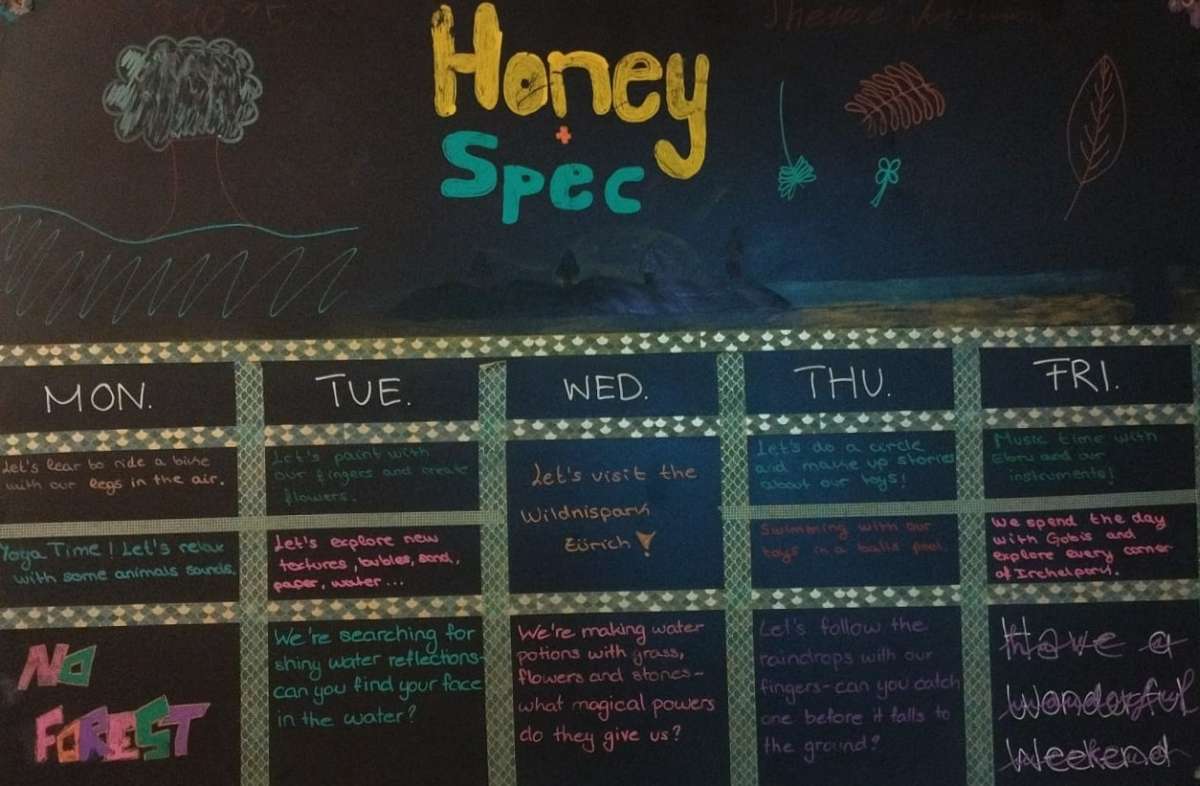 Honey
+
Spec
MON.
TUE.
WED.
THU.
FRI.
Let's lear to ride a bike
with our legs in the air.
Let's paint with
our fingers and create
flowers.
Let's visit the
Wildnispark
Zürich!
Let's do a circle
and make up stories
about our toys!
Music time with
Ebru and our
instruments!
Yoga Time! Let's relax
with some animals sounds.
Let's explore new
textures, bubles, sand,
paper, water...
Swimming with our
toys in a balls pool.
We spend the day
with Gobis and
explore every corner
of Irchelpark.
NO
FOREST
We're searching for
shiny water reflections-
can you find your face
in the water?
We're making water
potions with grass,
flowers and stones-
what magical powers
do they give us?
Let's follow the
raindrops with our
fingers-can you catch
one before it falls to
the ground?
Have a
Wonderful
Weekend